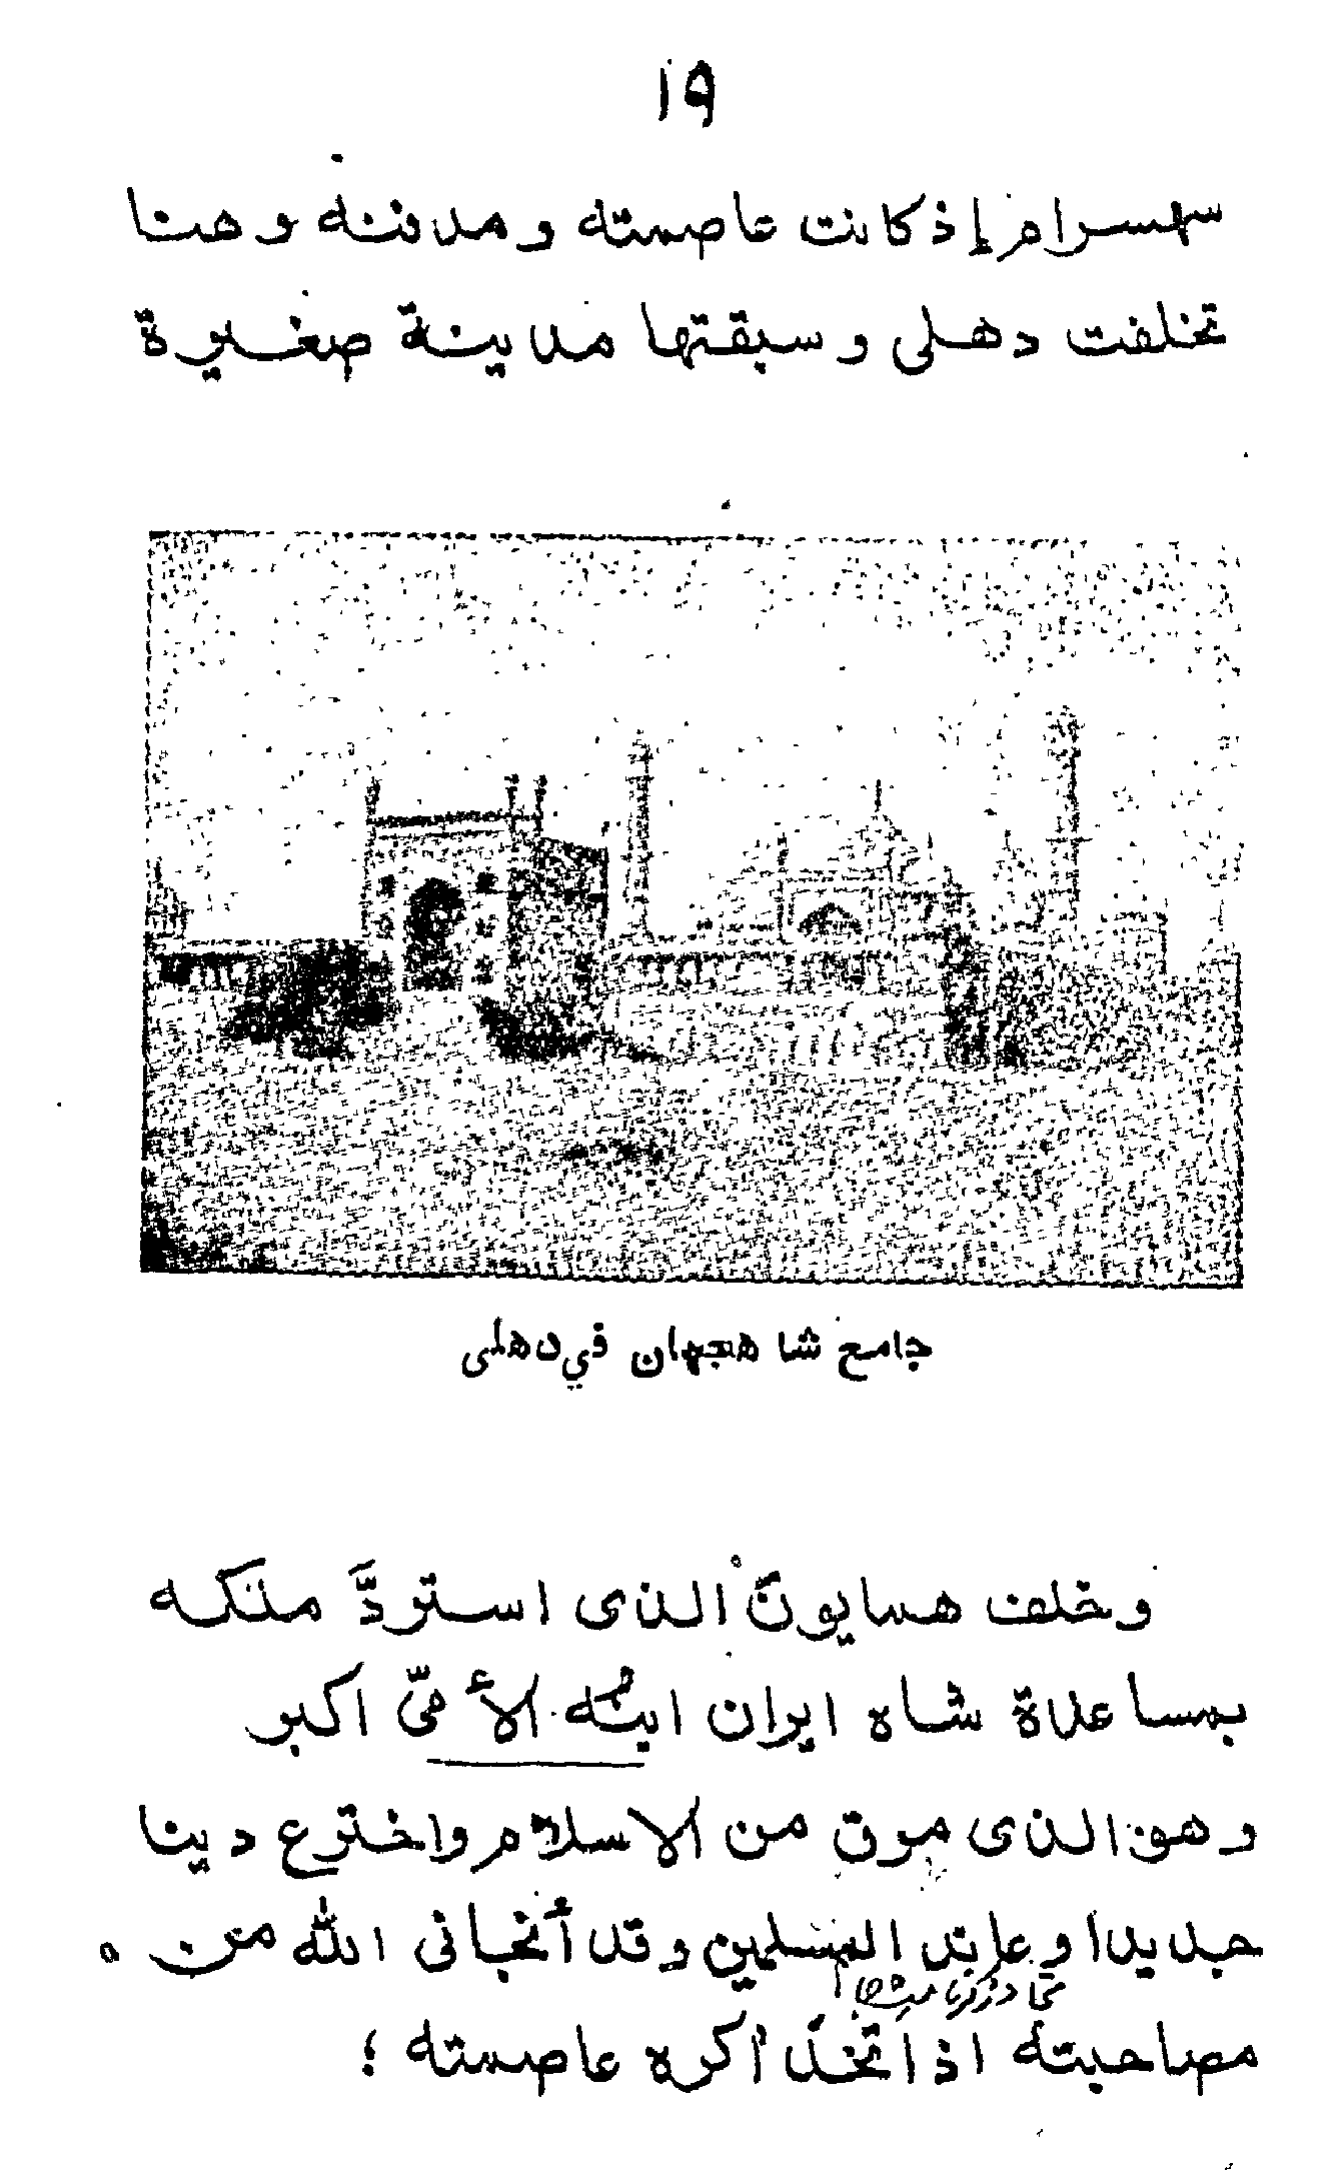 ١٩
سهسرام إذ كانت عاصمته ومدفنه وهنا
تخلفت دهلى وسبقتها مدينة صغيرة
جامع شاهجهان في دهلى
وخلف همايون الذى استردَّ ملكه
بمساعدة شاه ايران ابنُه الأُمىّ اكبر
وهو الذى مرق من الاسلام واخترع دينا
جديدا وعاند المسلمين وقد أنجانى الله من
مصاحبته اذ اتخذ آكره عاصمته ؛